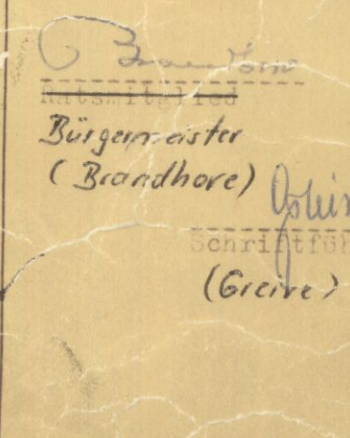 Ratsmitglied
Bürgermeister
(Brandhove)
Schriftfüh
(Greive)